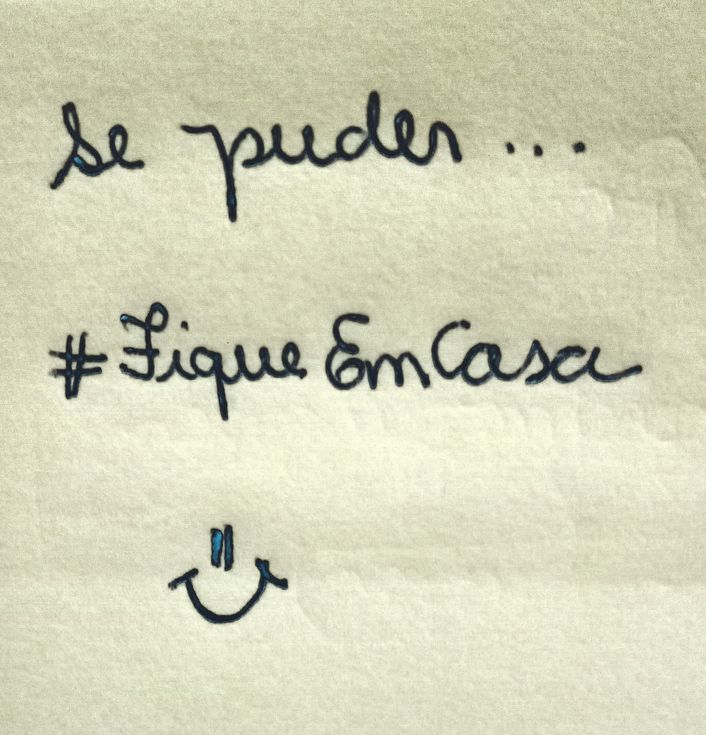 Se puder...
#FiqueEmCasa